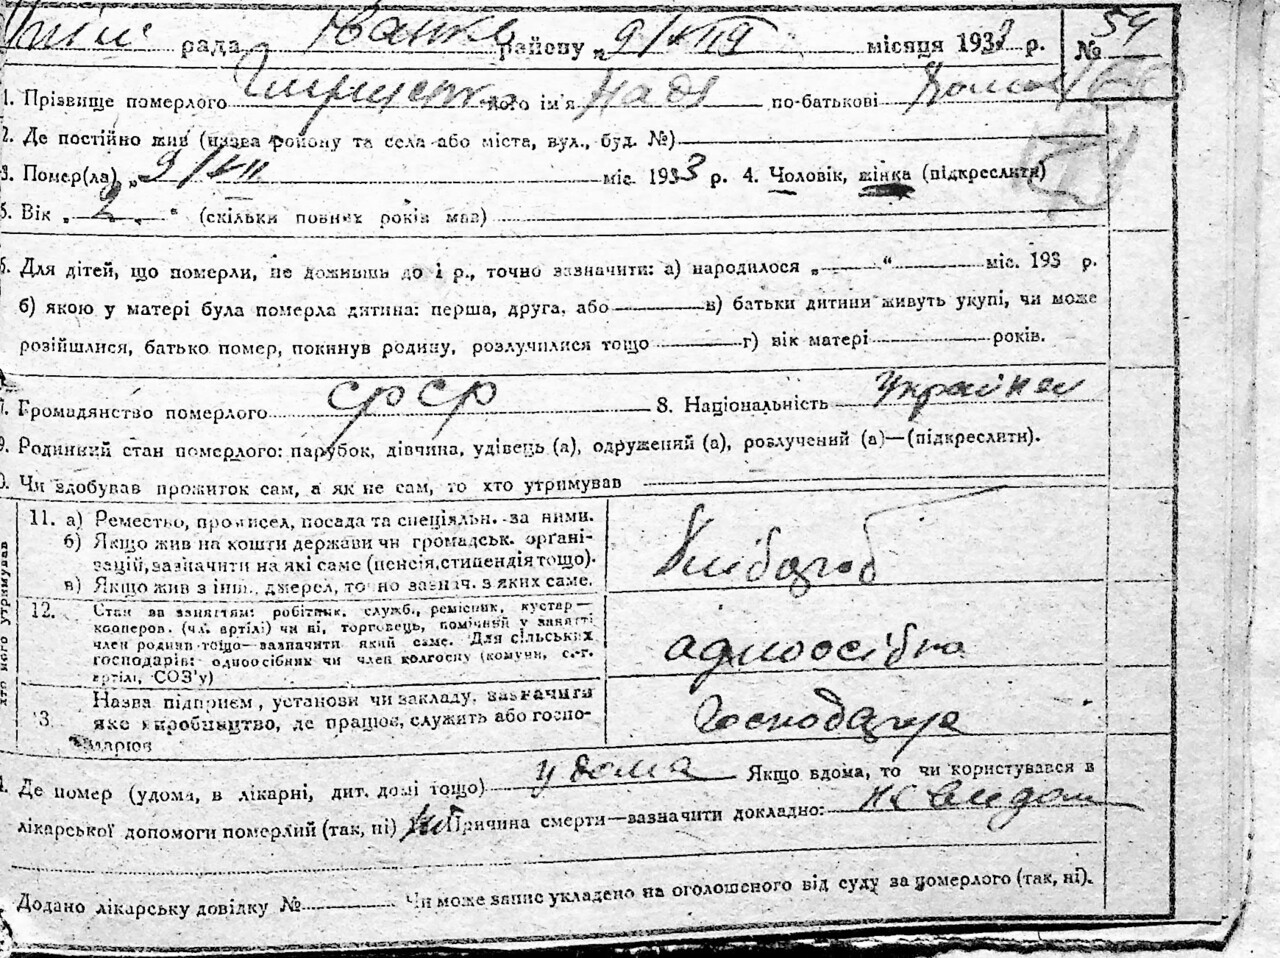 рада районну „ 9/VIII місяця 1933 р. № 54
1. Прізвище померлого його ім'я Надя по-батькові
2. Де постійно жив (назва району та села або міста, вул., буд. №)
3. Помер(ла) „ 9/VII міс. 1933 р. 4. Чоловік, жінка (підкреслити)
5. Вік „ 2 “ (скільки повних років мав)
6. Для дітей, що померли, не доживши до 1 р., точно зазначити: а) народилося „ “ міс. 193 р.
б) якою у матері була померла дитина: перша, друга, або в) батьки дитини живуть укупі, чи може
розійшлися, батько помер, покинув родину, розлучилися тощо г) вік матері років.
7. Громадянство померлого СРСР 8. Національність Українка
9. Родинний стан померлого: парубок, дівчина, удівець (а), одружений (а), розлучений (а)—(підкреслити).
0. Чи здобував прожиток сам, а як не сам, то хто утримував
хто його утримував
11. а) Ремество, промисел, посада та спеціяльн. за ними.
б) Якщо жив на кошти держави чи громадськ. органі-
зацій, зазначити на які саме (пенсія, стипендія тощо).
в) Якщо жив з інш. джерел, точно зазнач. з яких саме.
Хлібороб
12. Стан за заняттям: робітник, служб., ремісник, кустар—
кооперов. (чл. артілі) чи ні, торговець, помічний у занятті
член родини тощо—зазначити який саме. Для сільських
господарів: одноосібник чи член колгоспу (комуни, с.-г.
артілі, СОЗ'у)
одноосібно
13. Назва підприєм., установи чи закладу, зазначити
яке виробництво, де працює, служить або госпо-
дарює
Господарка
Де помер (удома, в лікарні, дит. домі тощо) удома Якщо вдома, то чи користувався в
лікарської допомоги померлий (так, ні) ні Причина смерти—зазначити докладно: не відом
Додано лікарську довідку № Чи може запис укладено на оголошеного від суду за померлого (так, ні).